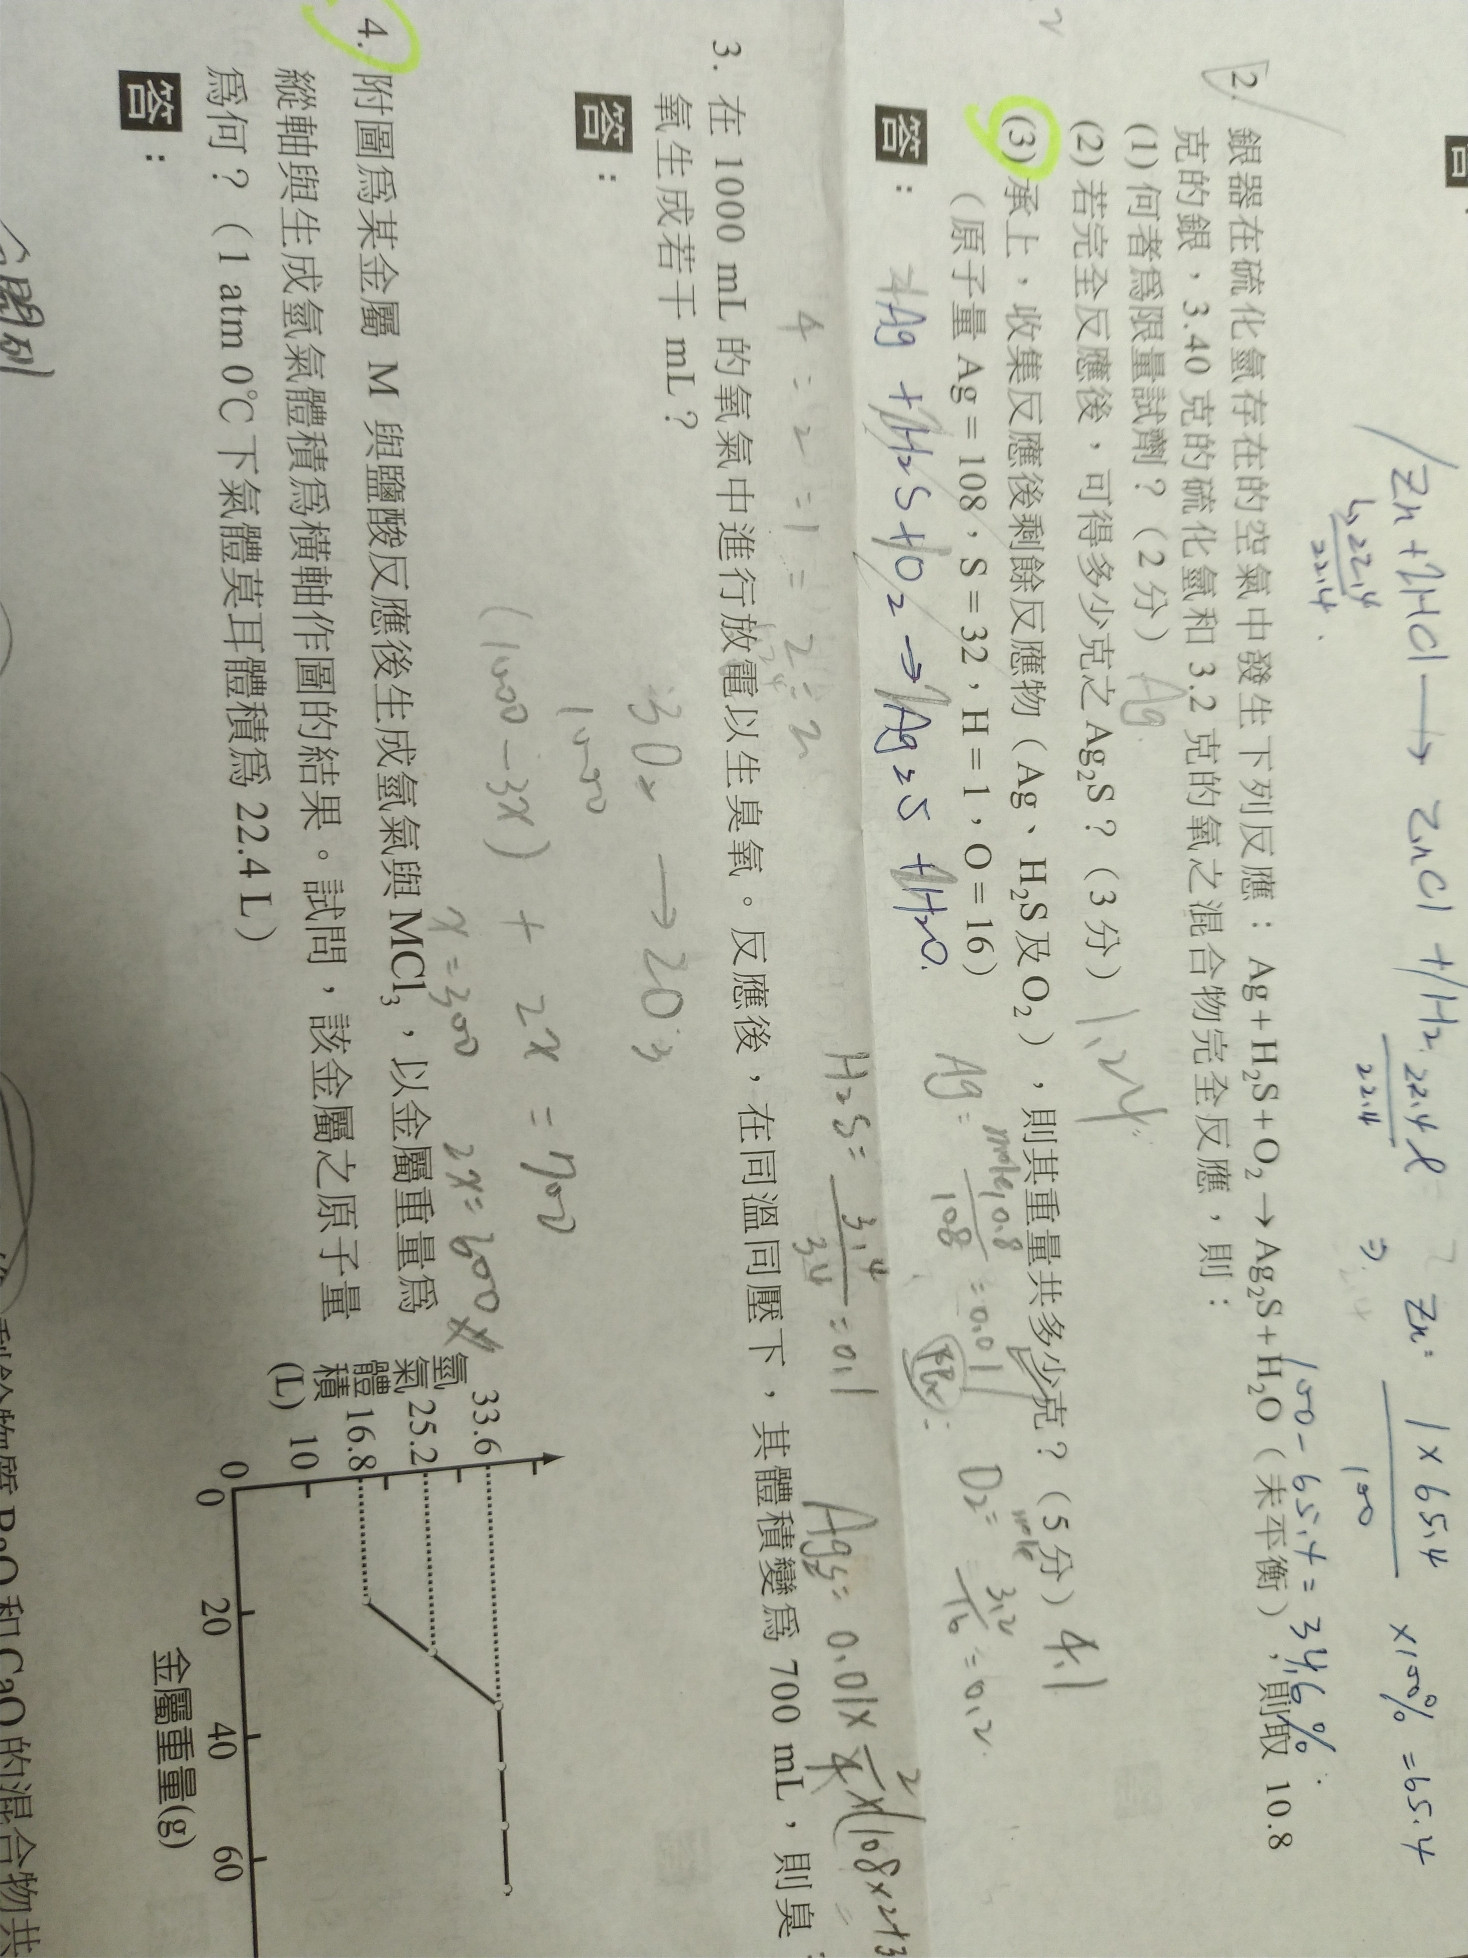 Zn + 2HCl → ZnCl + 1H2. 22.4 ℓ ⇒ Zn: 1×65.4 ×100% = 65.4
22.4
22.4
22.4
100
100-65.4=34.6%
2. 銀器在硫化氫存在的空氣中發生下列反應：Ag＋H₂S＋O₂→Ag₂S＋H₂O（未平衡），則取 10.8
克的銀，3.40 克的硫化氫和 3.2 克的氧之混合物完全反應，則：
(1) 何者為限量試劑？（2 分） Ag
(2) 若完全反應後，可得多少克之 Ag₂S？（3 分） 1.24
(3) 承上，收集反應後剩餘反應物（Ag、H₂S 及 O₂），則其重量共多少克？（5 分） 4.1
（原子量 Ag＝108，S＝32，H＝1，O＝16）
Ag = mole 10.8
108 = 0.01
O2 = mole 3.2
16 = 0.2
答：
4Ag + 2H2S + 1O2 → 2Ag2S + 2H2O.
H2S = 3.4
34 = 0.1
4 : 2 = 1 = 2 : 2
3. 在 1000 mL 的氧氣中進行放電以生臭氧。反應後，在同溫同壓下，其體積變為 700 mL，則臭
氧生成若干 mL？
答：
3O2 → 2O3
1000
(1000-3x) + 2x = 700
x=300 2x=600
4. 附圖為某金屬 M 與鹽酸反應後生成氫氣與 MCl₃，以金屬重量為
縱軸與生成氫氣體積為橫軸作圖的結果。試問，該金屬之原子量
為何？（1 atm 0℃下氣體莫耳體積為 22.4 L）
答：
氫氣體積(L)
33.6
25.2
16.8
10
0
0 20 40 60
金屬重量(g)